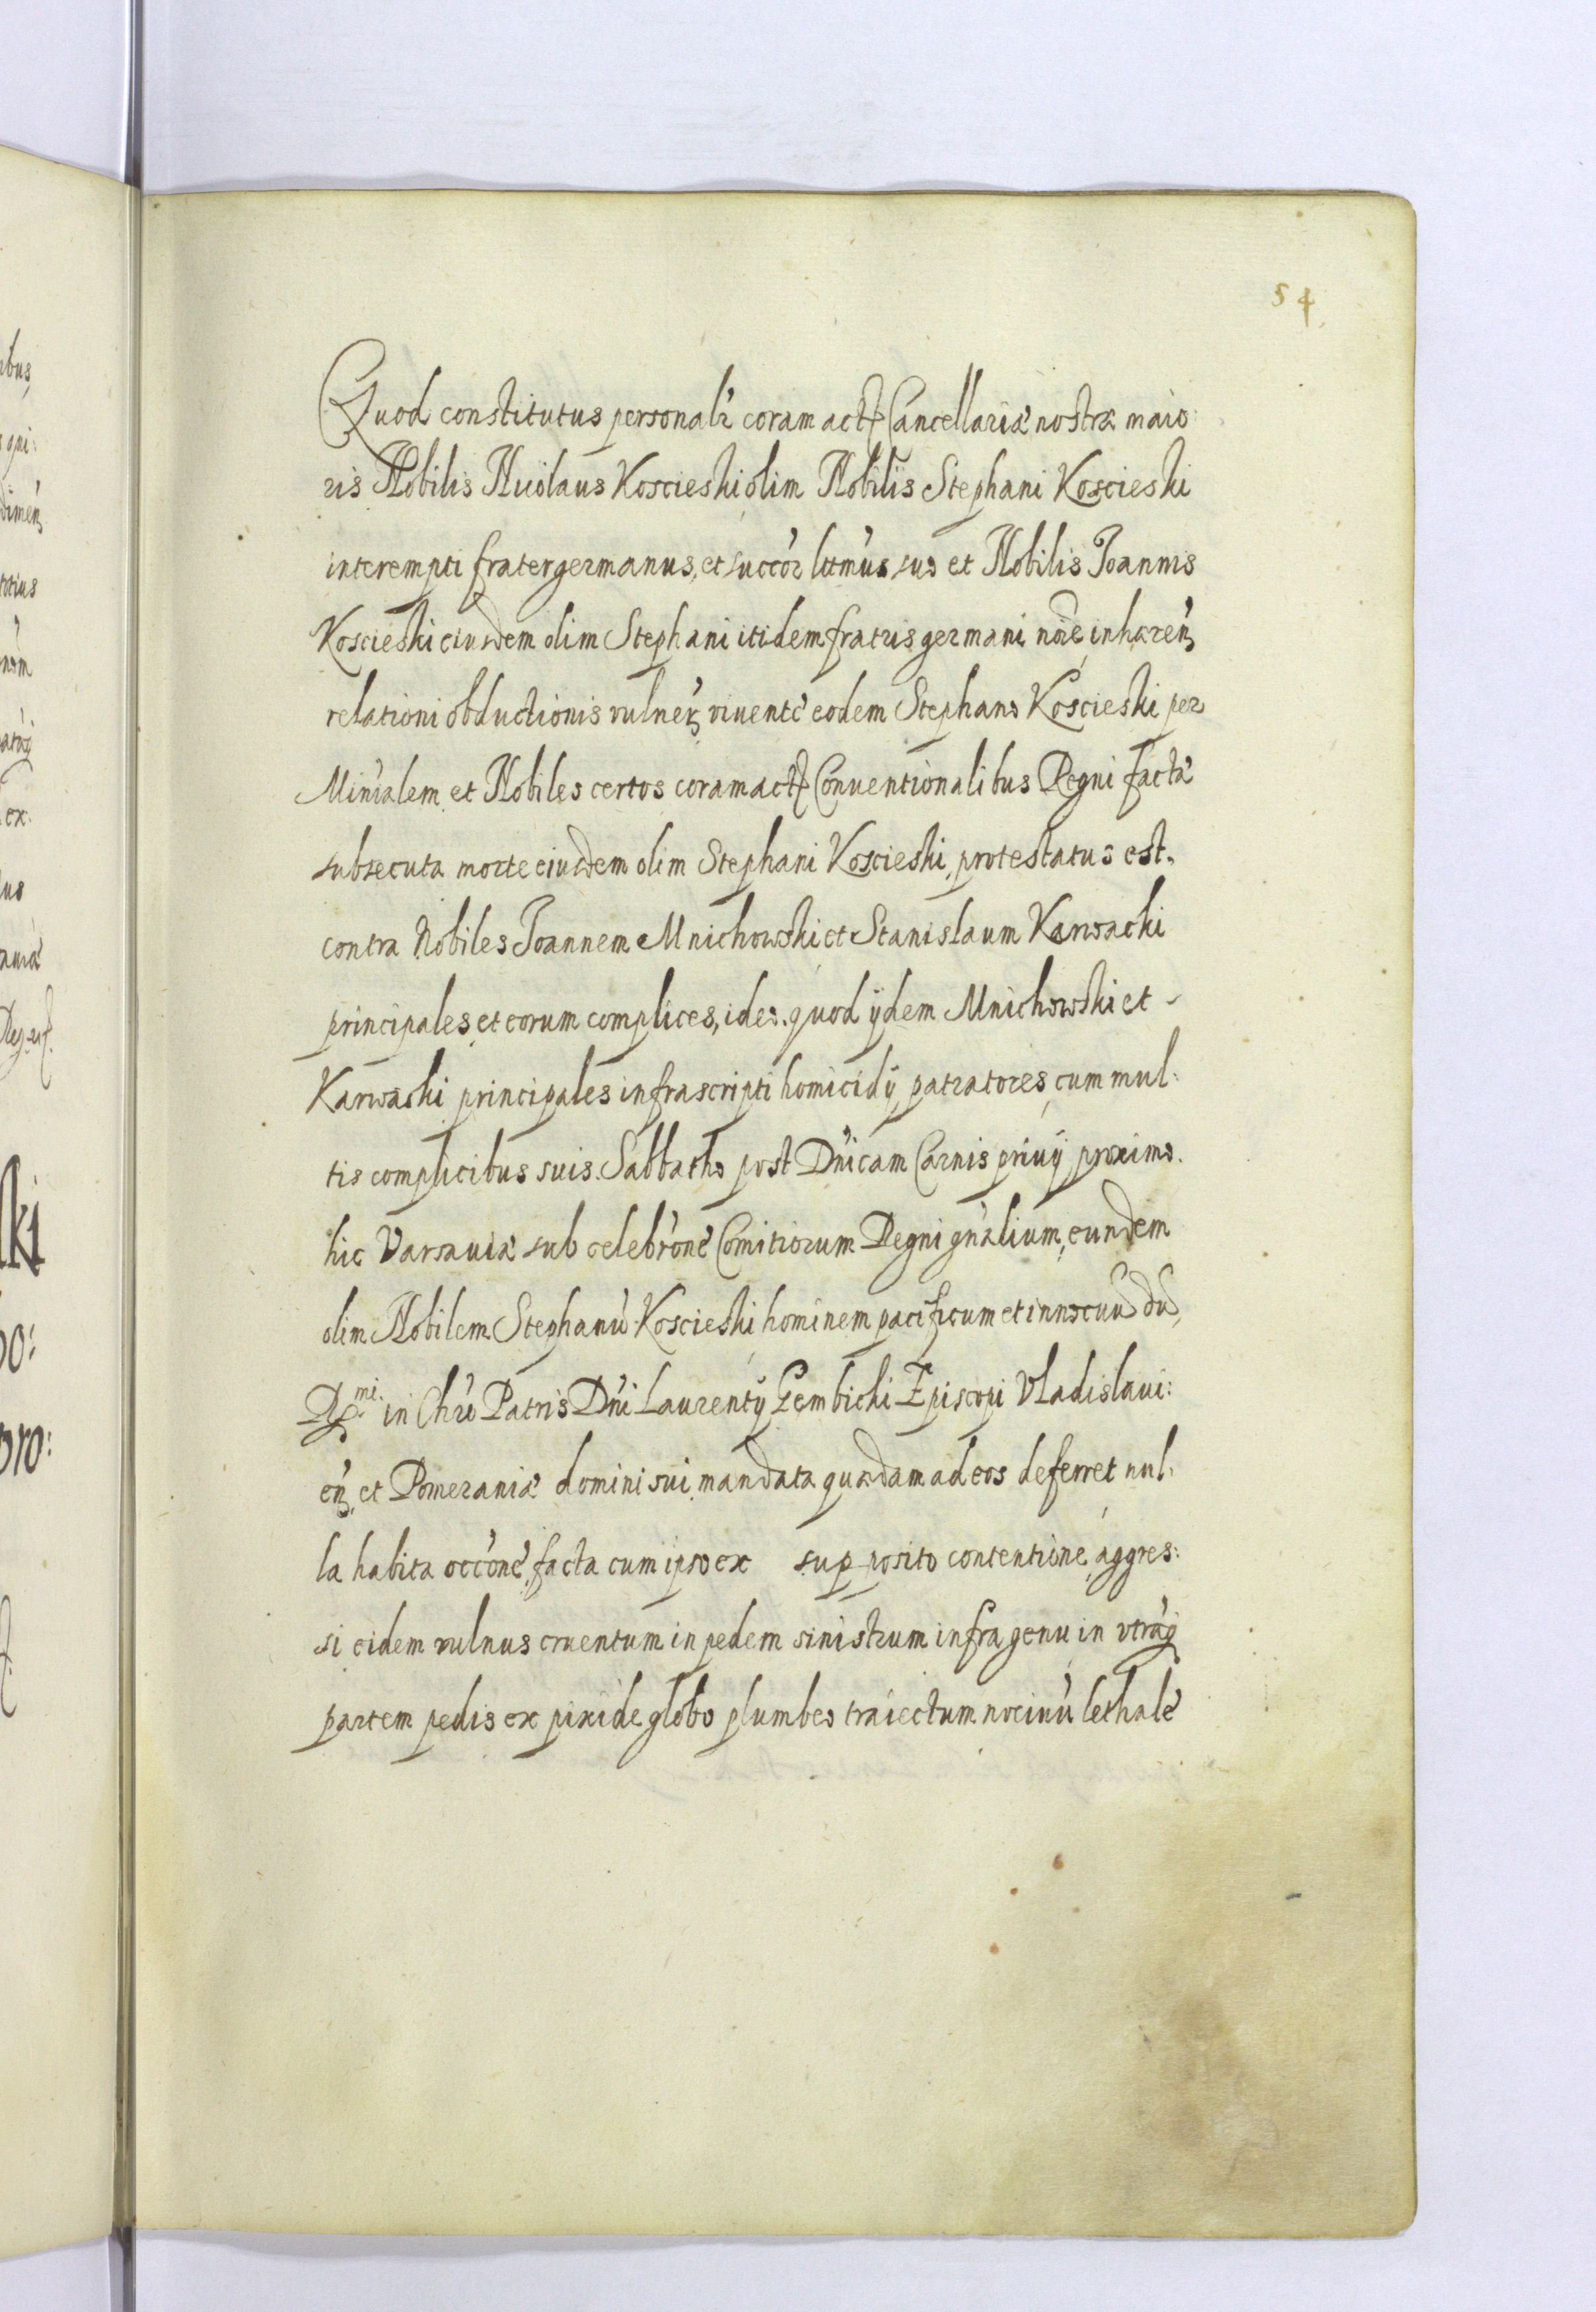 54
Quod constitutus personalr coram act Cancellariæ nostræ maio:
ris Nobilis Nicolaus Koscieski olim Nobilis Stephani Koscieski
interempti frater germanus, et succor ltmus suo et Nobilis Joannis
Koscieski eiusdem olim Stephani itidem fratris germani noie, inhæren
relationi obductionis vulner viuente eodem Stephano Koscieski per
Minialem et Nobiles certos coram act Conuentionalibus Regni facta
subsecuta morte eiusdem olim Stephani Koscieski, protestatus est.
contra Nobiles Joannem Mnichowski et Stanislaum Karwacki
principales et eorum complices, ideo. quod ijdem Mnichowski et -
Karwacki principales infrascripti homicidÿ patratores, cum mul:
tis complicibus suis. Sabbatho post Dnicam Carnis priuÿ proximo.
hic Varsauiæ sub celebrone Comitiorum Regni gnalium, eundem
olim Nobilem Stephanu Koscieski hominem pacificum et innocuu du,
mi. in Chro Patris Dni Laurentÿ Gembicki Episcopi Vladislaui:
en, et Pomeraniæ domini sui mandata quædam ad eos deferret nul:
la habita occone, facta cum ipso ex sup posito contentione, aggres:
si eidem vulnus cruentum in pedem sinistrum infra genu in vtraq
partem pedis ex pixide globo plumbeo traiectum nociuu lethale